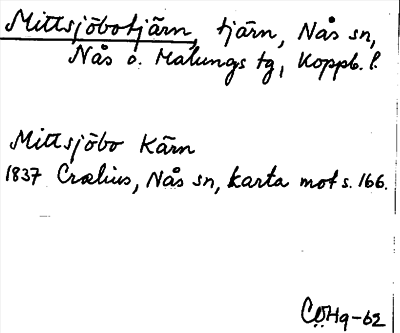 Mittsjöbotjärn, tjärn, Nås sn,
Nås o. Malungs tg, Koppb. l.
Mittsjöbo Kärn
1837 Crælius, Nås sn, karta mot s. 166.
CÖHg-62